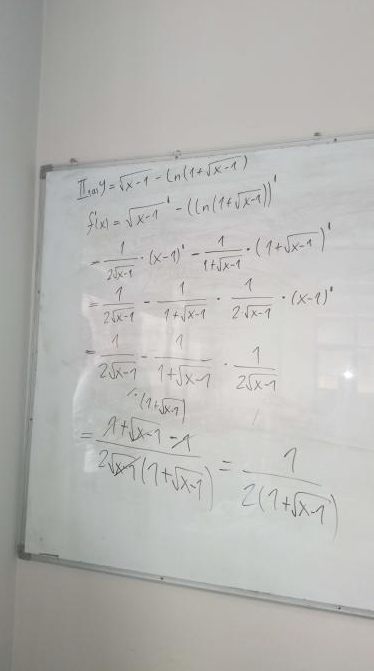 II₁₍ₐ₎ y = √x-1 - ln(1+√x-1)
f'(x) = √x-1' - (ln(1+√x-1))'
= 1/(2√x-1) · (x-1)' - 1/(1+√x-1) · (1+√x-1)'
= 1/(2√x-1) - 1/(1+√x-1) · 1/(2√x-1) · (x-1)'
= 1/(2√x-1) - 1/(1+√x-1) · 1/(2√x-1)
/·(1+√x-1)
= (1+√x-1-1)/(2√x-1(1+√x-1)) = 1/(2(1+√x-1))